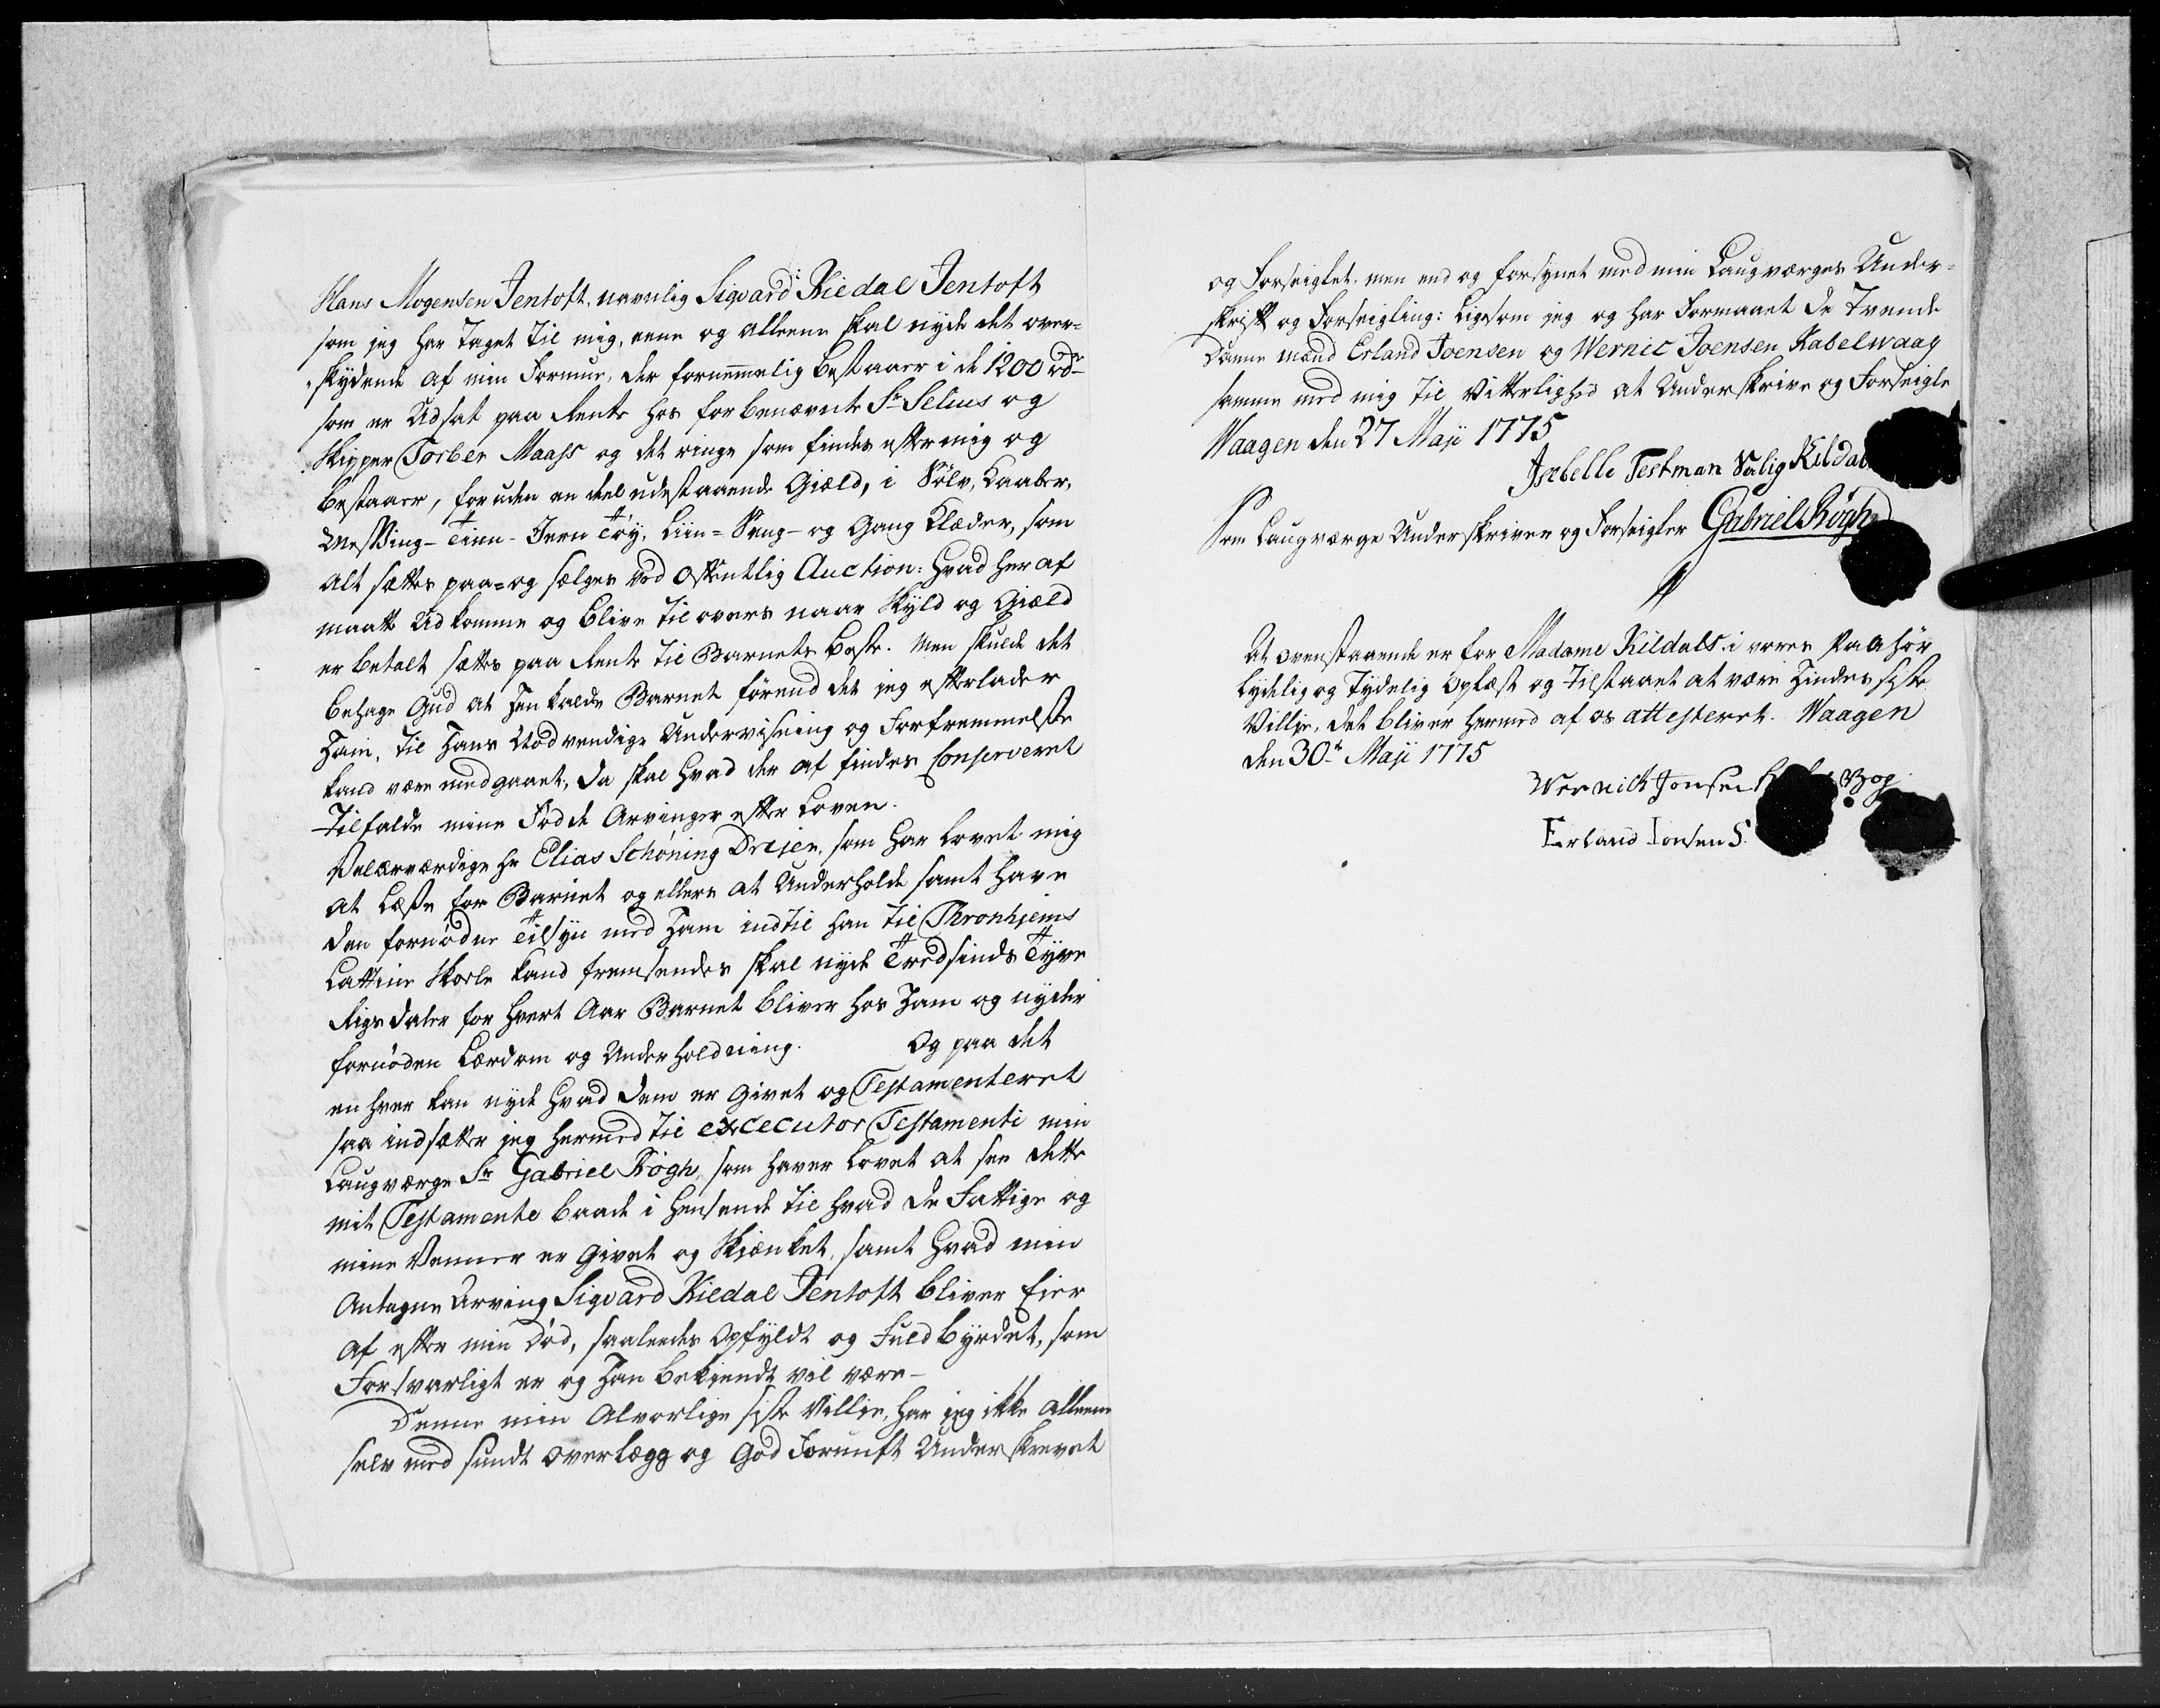 Hans Mogensen Jentoft, navnlig Sigvard Kiedal Jentoft
som jeg har Taget til mig, eene og alleene skal nyde det over-
skydende af min Formue, der fornemmelig bestaaer i de 1200 rdr
som er Udsat paa Rente hos forbenævnte Sr Selius og
Skipper Torber Maahs og det ringe som findes efter mig og
bestaaer, foruden en deel udestaaende Giæld, i Sølv, Kaaber,
Messing- Tinn- Jern Tøy, Liin= Seng- og Gang Klæder, som
alt sættes paa= og sælges ved offentlig Auction: hvad her af
maatte Udkomme og blive til overs naar Skyld og Giæld
er betalt sættes paa Rente til Barnets beste. Men skulde det
behage Gud at henkalde Barnet førend det jeg efterlader
Ham, til Hans Nødvendige Underviisning og Forfremmelse
kand være medgaaet, da skal hvad der af findes Conserveret
Tilfalde mine Fødde Arvinger efter Loven.
Velærværdige Hr Elias Schöning Dreier, som har lovet mig
at Læse for Barnet og ellers at Underholde samt have
den fornødne Tilsyn med Ham indtil han til Thronhjems
Lattine Skole kand fremsendes skal nyde Tredsinds Tyve
Rigsdaler for hvert Aar Barnet bliver hos Ham og nyder
fornøden Lærdom og Underholdning. Og paa det
en hver kan nyde hvad dem er Givet og Testamenteret
saa indsætter jeg hermed til excecutor Testamenti min
Laugværge Sr Gabriel Kögh, som haver lovet at see dette
mit Testamente baade i henseende til hvad de Fattige og
mine Venner er Givet og Skiænket, samt hvad min
Antagne Arving Sigvard Kiedal Jentoft bliver Eier
af efter min Død, saaleedes Opfyldt og Fuldbyrdet, som
Forsvarligt er og Han bekiendt vil være-
Denne min Alvorlige siste Villie, har jeg ikke alleene
selv med sundt overlægg og God Fornuft Underskrevet
og Forseiglet, men end og forsynet med min Laugværges Under-
skrift og Forseigling: Ligesom jeg og har Formaaet de Tvende
Danne mænd Erland Joensen og Wernic Joensen Kabelwaag
samme med mig til Vitterlighed at Underskrive og Forseigle
Waagen den 27 Maji 1775
Isebelle Testman Salig Kildal
Som Laugværge Underskriver og Forseigler Gabriel Kögh
At ovenstaaende er for Madame Kildals i vores Paahør
lydelig og Tydelig Oplæst og Tilstaaet at være Hindes siste
Villie, det bliver hermed af os attesteret. Waagen
den 30te Maji 1775
Wernick Jonsen
Erland Jonsen S.